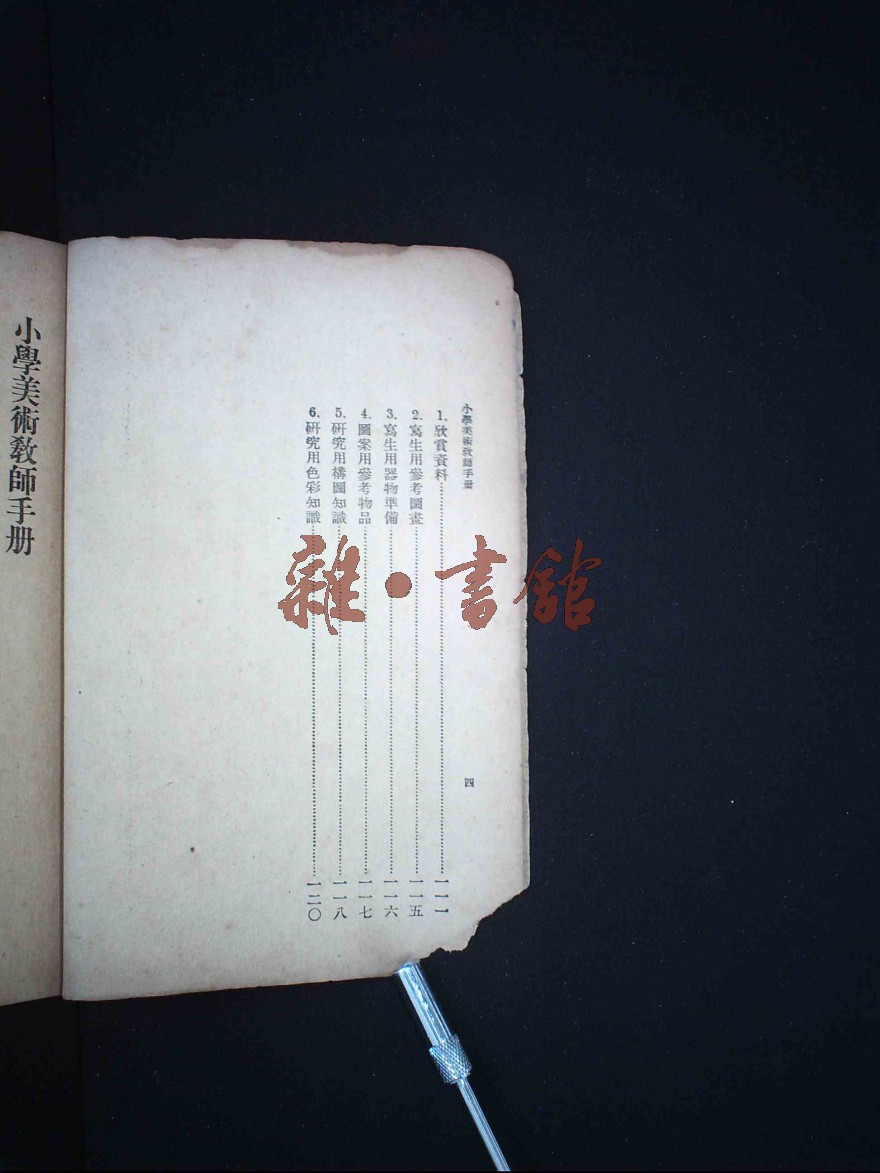 小學美術教師手册
四
1. 欣賞資料……一一一
2. 寫生用參考圖畫……一一五
3. 寫生用器物準備……一一六
4. 圖案用參考物品……一一七
5. 研究用構圖知識……一一八
6. 研究用色彩知識……一二〇
小學美術教師手册
雜・書館